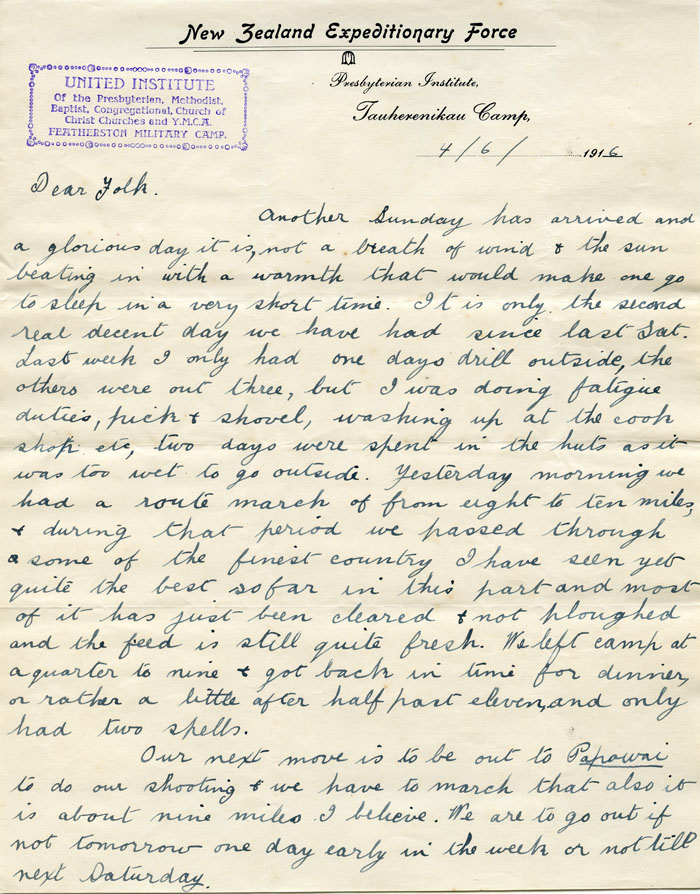 New Zealand Expeditionary Force
Presbyterian Institute,
Tauherenikau Camp,
4/6/ 1916
UNITED INSTITUTE
Of the Presbyterian, Methodist,
Baptist, Congregational, Church of
Christ Churches and Y.M.C.A.
FEATHERSTON MILITARY CAMP.
Dear Folk.
Another Sunday has arrived and
a glorious day it is, not a breath of wind & the sun
beating in with a warmth that would make one go
to sleep in a very short time. It is only the second
real decent day we have had since last Sat.
Last week I only had one days drill outside, the
others were out three, but I was doing fatigue
duties, pick & shovel, washing up at the cook
shop etc, two days were spent in the huts as it
was too wet to go outside. Yesterday morning we
had a route march of from eight to ten miles,
& during that period we passed through
some of the finest country I have seen yet
quite the best so far in this part and most
of it has just been cleared & not ploughed
and the feed is still quite fresh. We left camp at
a quarter to nine & got back in time for dinner,
or rather a little after half past eleven, and only
had two spells.
Our next move is to be out to Papawai
to do our shooting & we have to march that also it
is about nine miles I believe. We are to go out if
not tomorrow one day early in the week or not till
next Saturday.